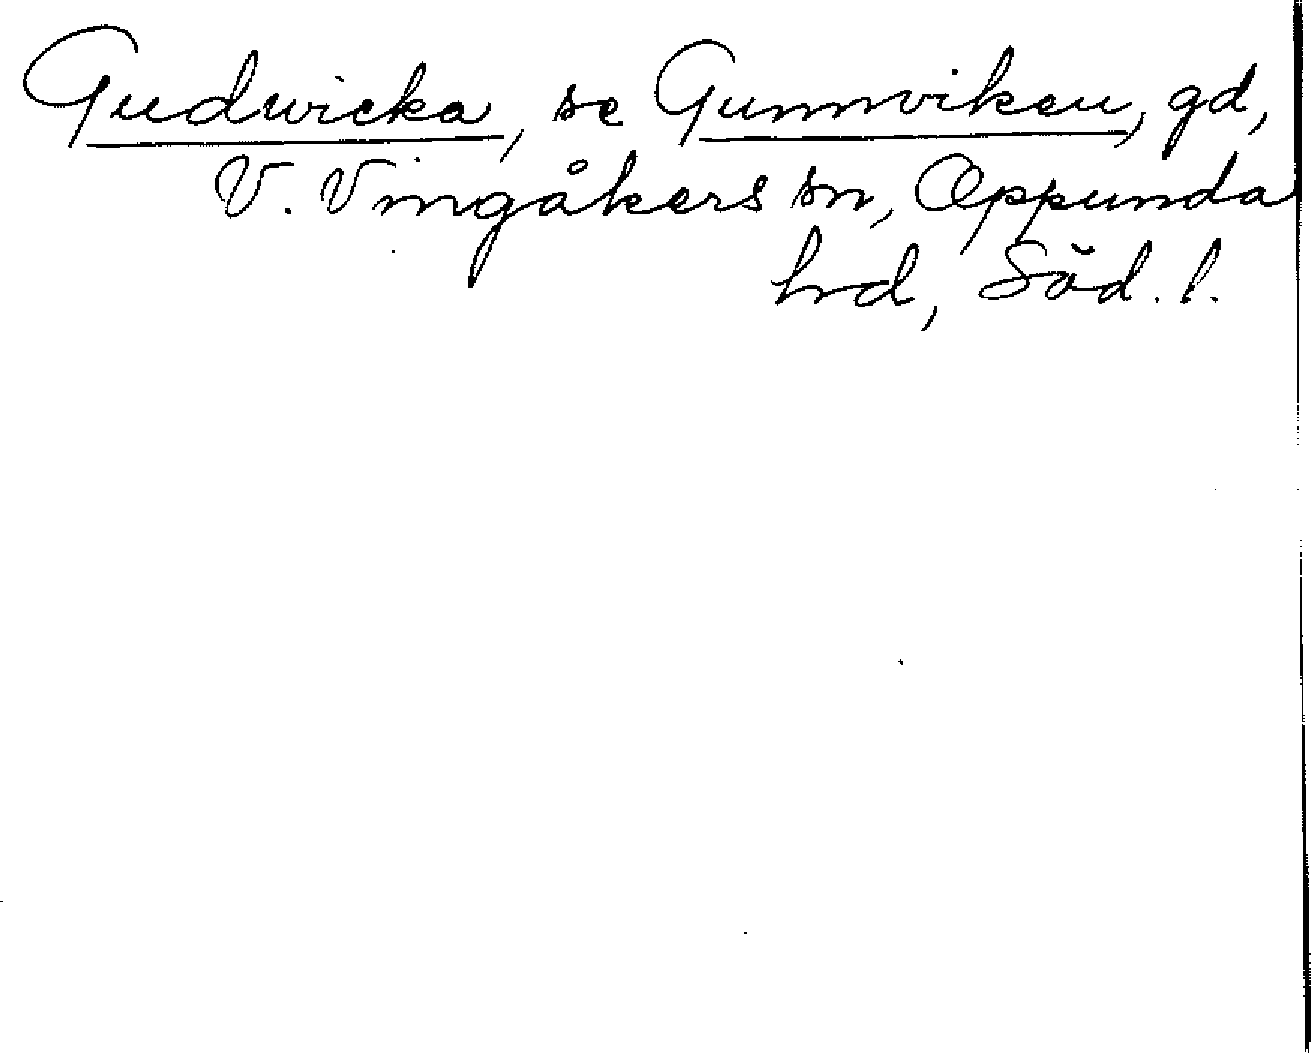 Gudwicka, se Gunnviken, gd,
V. Vingåkers sn, Oppunda
hd, Söd. l.